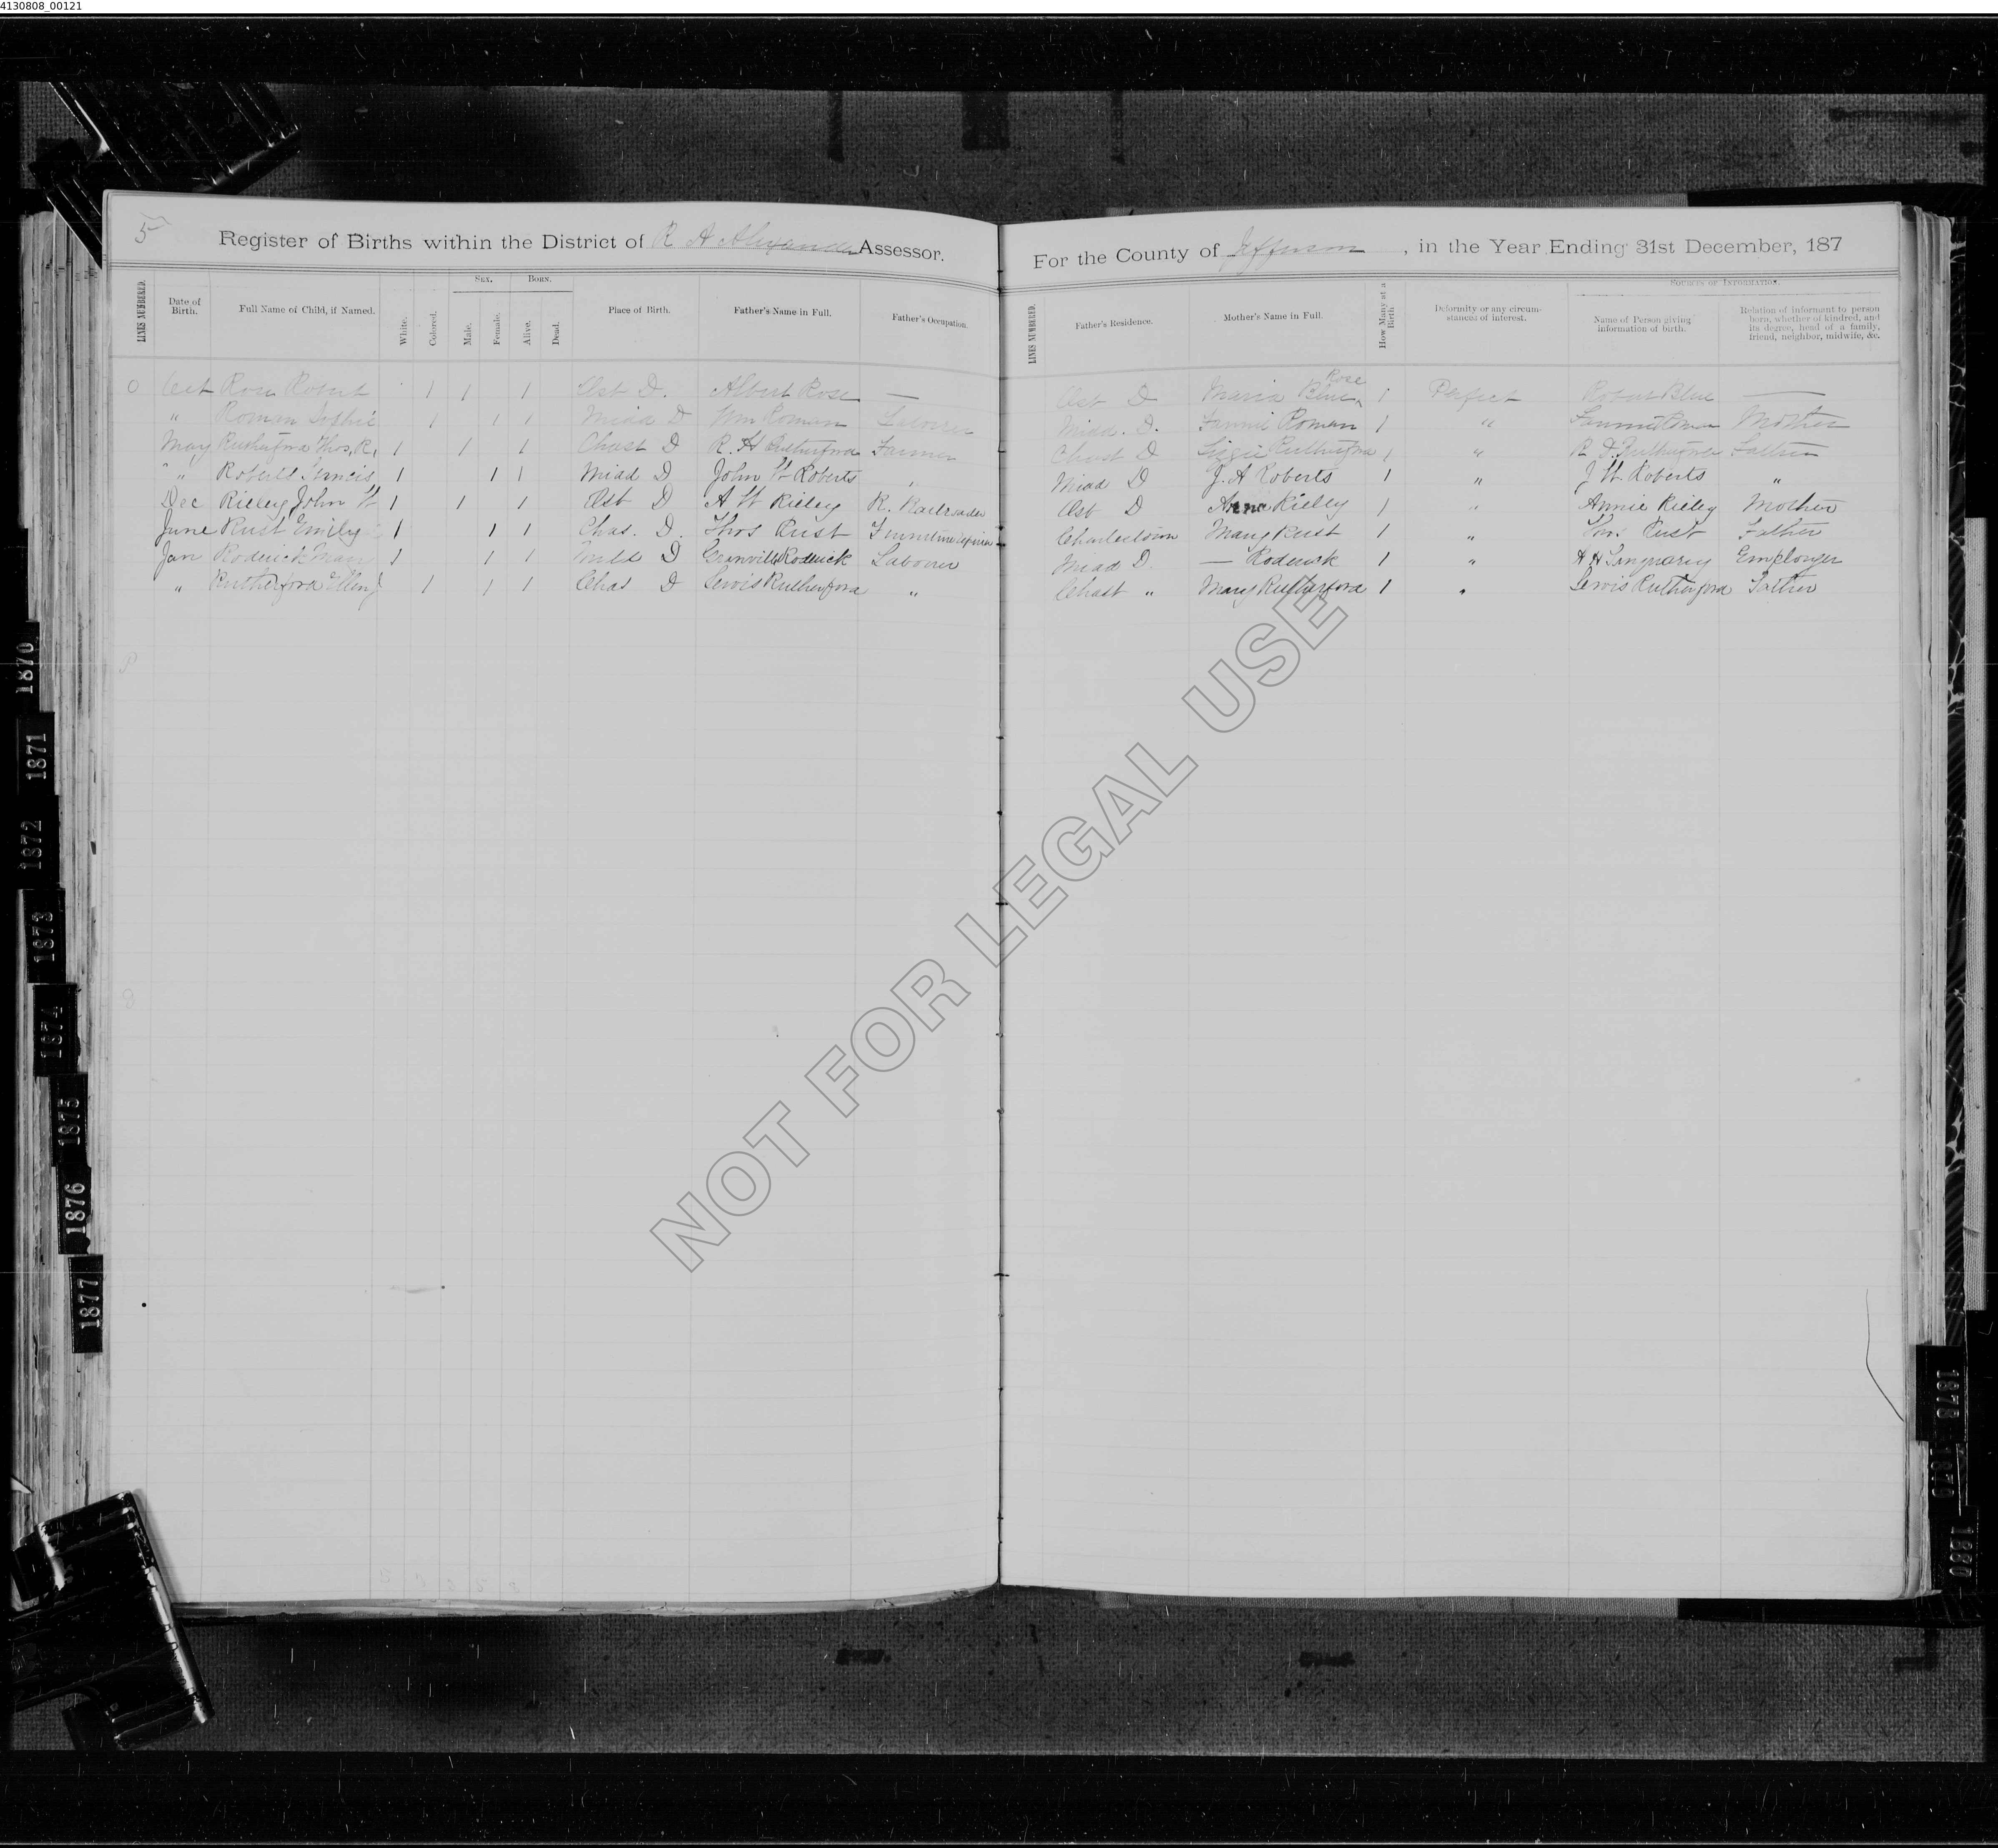 4130808_00121
5
Register of Births within the District of R A Alexander Assessor.
For the County of Jefferson, in the Year Ending 31st December, 187
LINES NUMBERED. Date of Birth. Full Name of Child, if Named. White. Colored. SEX. Male. Female. BORN. Alive. Dead. Place of Birth. Father's Name in Full. Father's Occupation.
LINES NUMBERED. Father's Residence. Mother's Name in Full. How Many at a Birth Deformity or any circumstances of interest. SOURCES OF INFORMATION. Name of Person giving information of birth. Relation of informant to person born, whether of kindred, and its degree, head of a family, friend, neighbor, midwife, &c.
Oct Rose Robert 1 1 1 Ost D. Albert Rose — Ost D Maria Blue Rose 1 Perfect Robert Blue —
" Roman Sophie 1 1 1 Midd D Wm Roman Laborer Midd. D. Fannie Roman 1 " Fannie Roman Mother
May Rutherford Thos, R, 1 1 1 Chast D R. H Rutherford Farmer Chast D Lizzie Rutherford 1 " R D. Rutherford Father
" Roberts 1 1 1 Midd D John W Roberts " Midd D J. A Roberts 1 " J W. Roberts "
Dec Rieley John W 1 1 1 Ost D A W Rieley R. Railroader Ost D Rieley 1 " Annie Rieley Mother
June Rust Emily 1 1 1 Chas. D. Thos Rust Charlestown Mary Rust 1 " Thos Rust Father
Jan Roderick Mary 1 1 1 Midd D Granville Roderick Laborer Midd D. — Roderick 1 " H H Employer
" Rutherford Ellen 1 1 1 Chas D Lewis Rutherford " Chast " Mary Rutherford 1 " Lewis Rutherford Father
NOT FOR LEGAL USE
1870
1871
1872
1873
1874
1875
1876
1877
1878
1879
1880